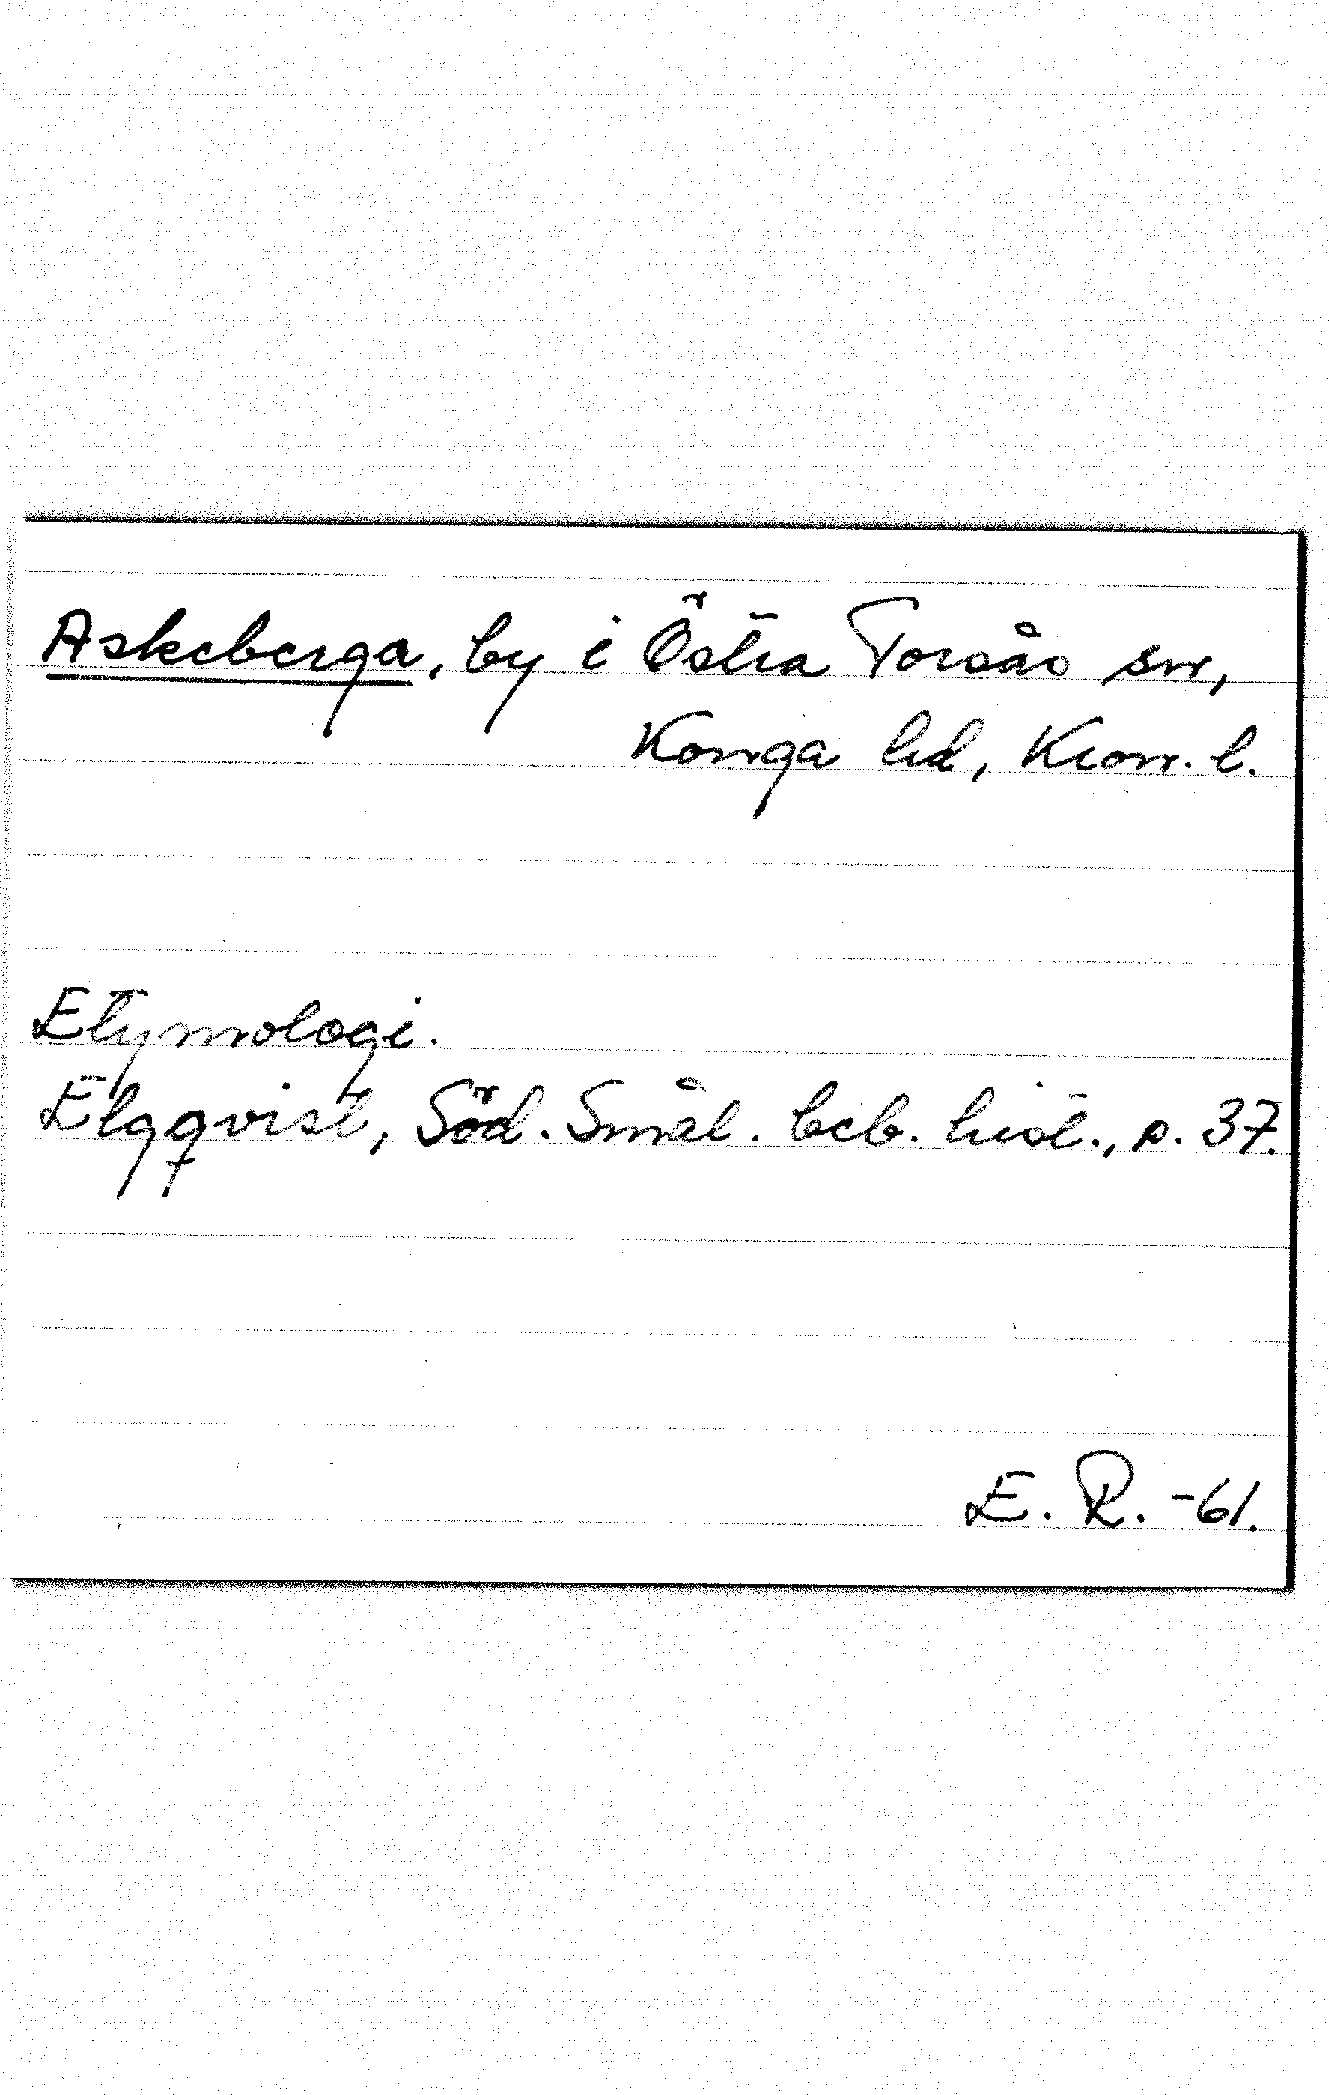 Askeberga, by i Östra Torsås sn,
Konga hd, Kron. l.
Etymologi.
Elgqvist, Söd. Smål. beb. hist., s. 37.
E. R. -61.